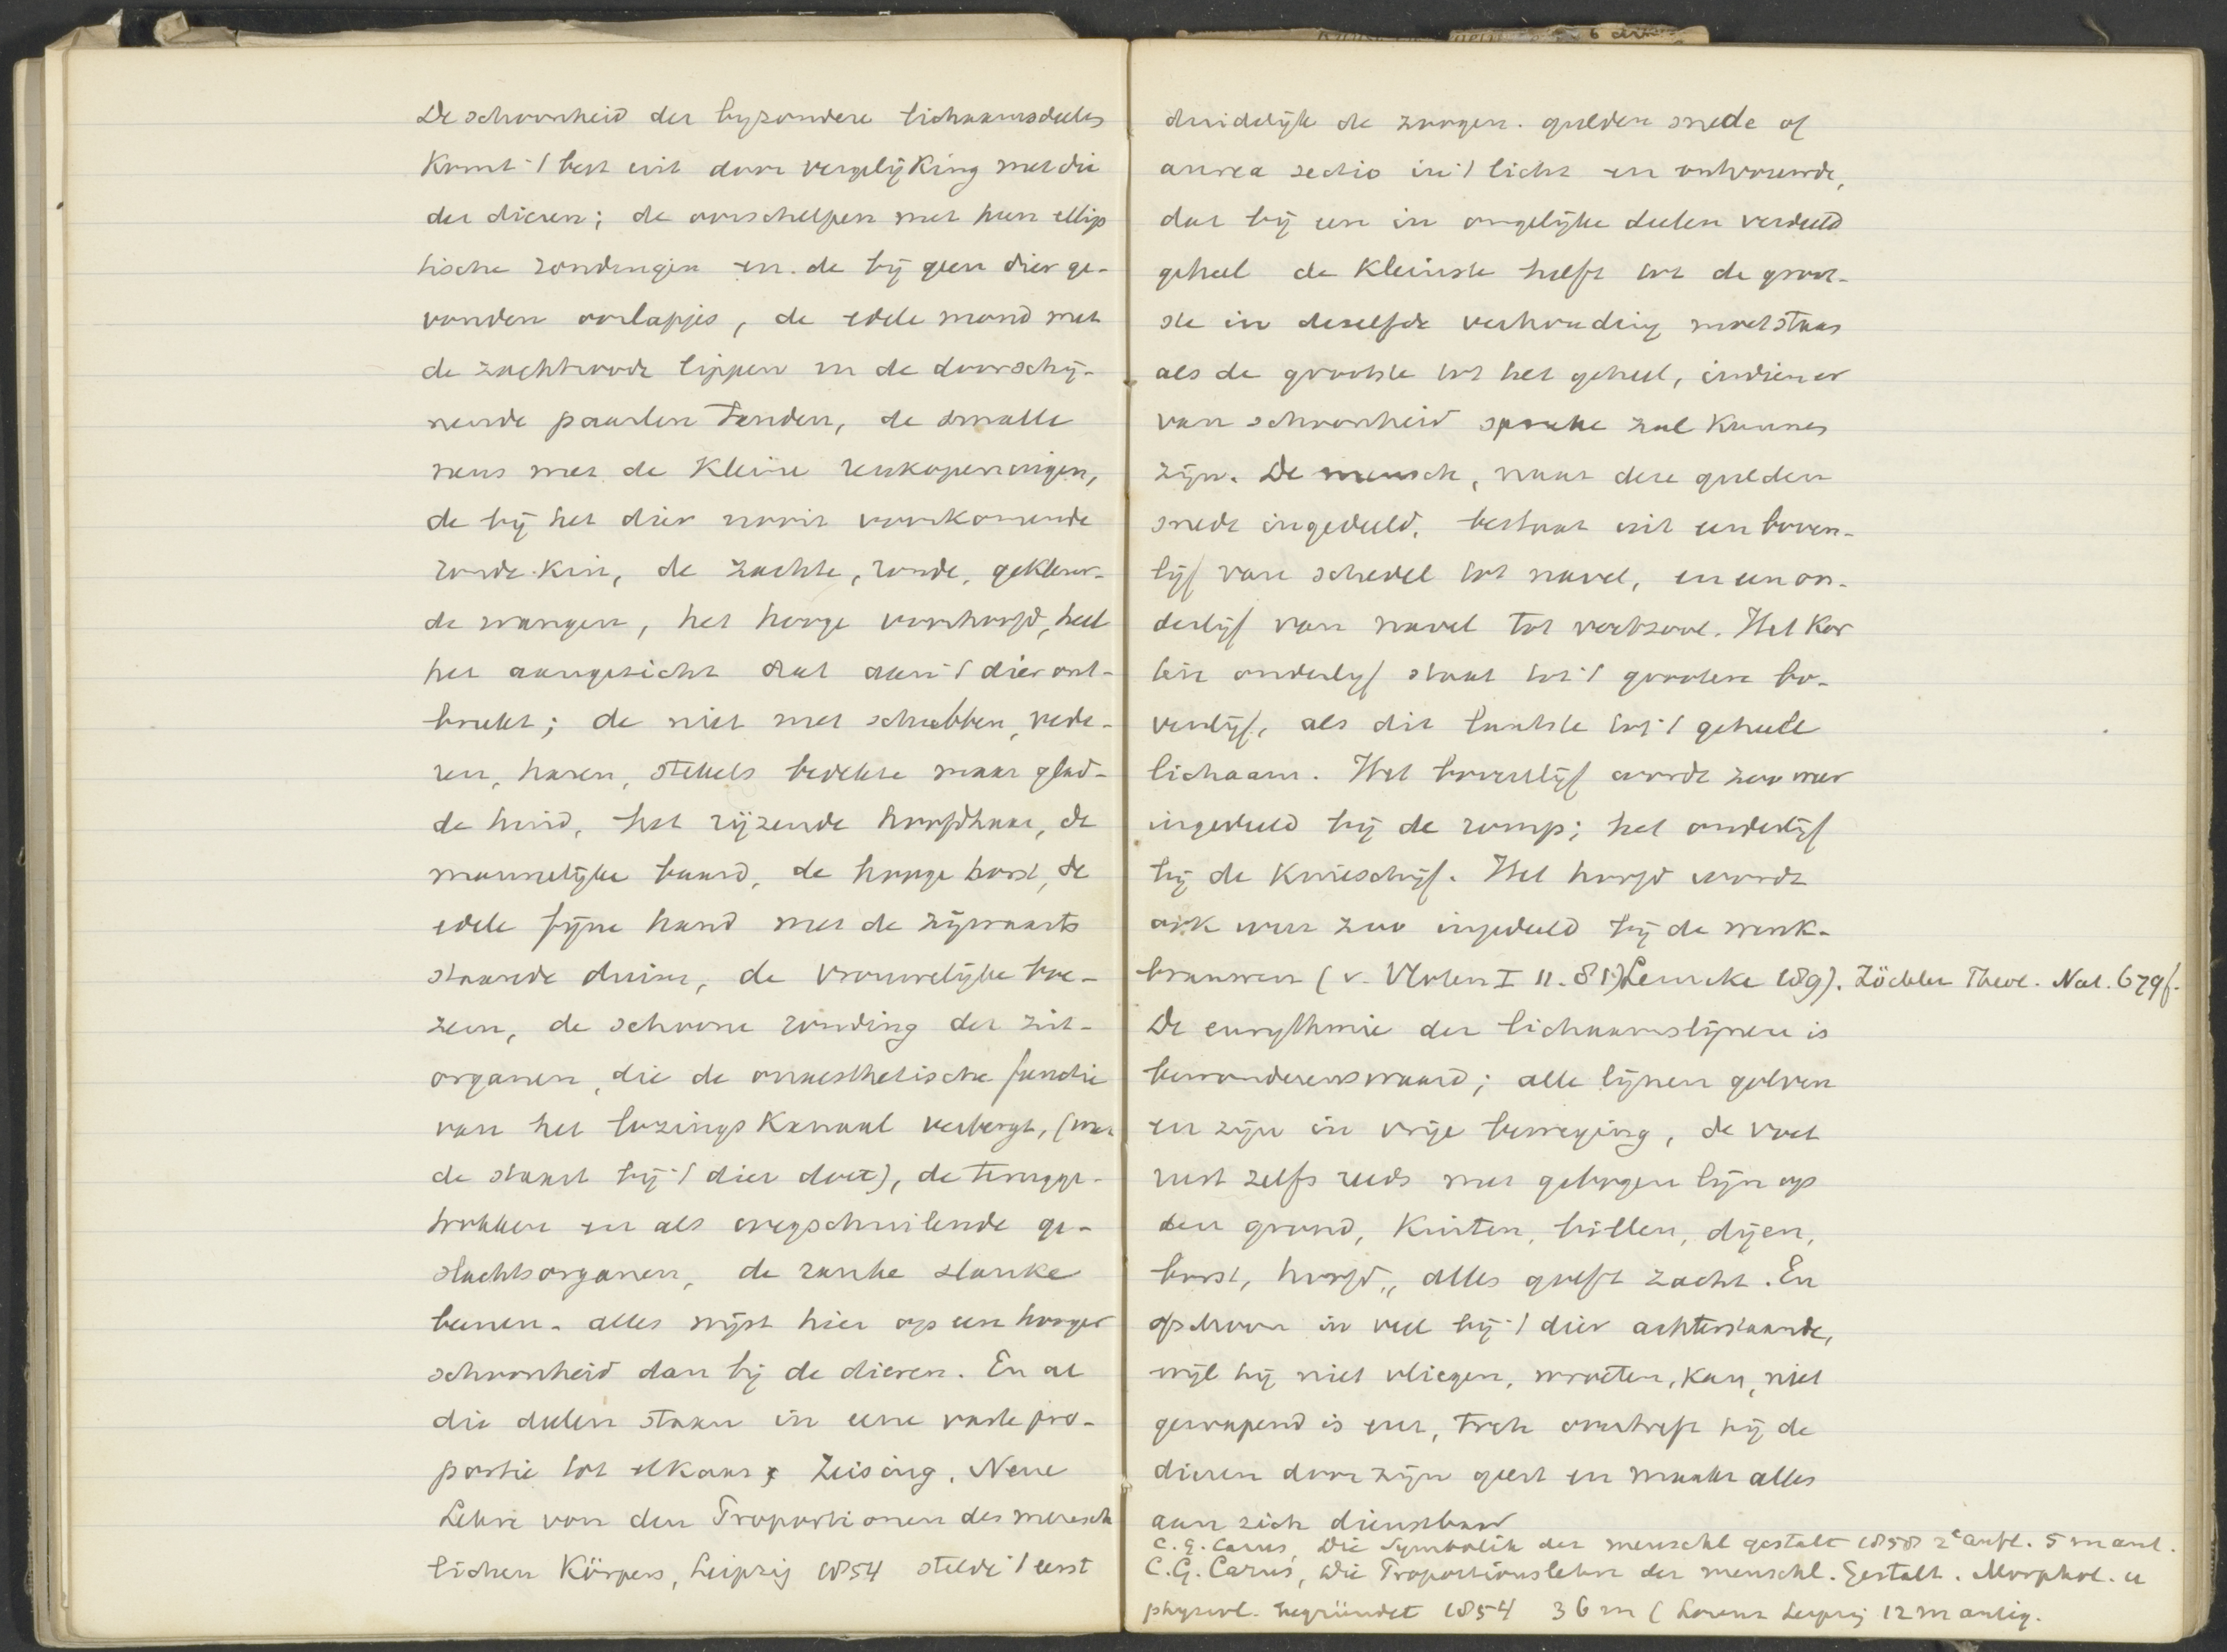 De schoonheid der byzondere lichaamsdeelen
komt 't best uit door vergelijking met die
der dieren; de oorschelpen met hun ellip
tische rondingen en de bij geen dier ge-
vonden oorlapjes, de edele mond met
de zachtroode lippen en de doorschij-
nende paarlen tanden, de smalle
neus met de kleine reukopeningen,
de bij het dier nooit voorkomende
ronde kin, de zachte, ronde, gekleur-
de wangen, het hooge voorhoofd, heel
het aangezicht dat aan 't dier ont-
breekt; de niet met schubben, vede-
ren, haren, stekels bedekte maar glad-
de huid, het rijzende hoofdhaar, de
mannelijke baard, de hooge borst, de
edele fijne hand met de zijwaarts
staande duim, de vrouwelijke boe-
zem, de schoone ronding der zit-
organen, die de onaesthetische functie
van het lozingskanaal verbergt, (wat
de staart bij 't dier doet), de terugge-
trokken en als wegschuilende ge-
slachtsorganen, de ranke slanke
beenen - alles wijst hier op een hooger
schoonheid dan bij de dieren. En al
die deelen staan in eene vaste pro-
portie tot elkaar; Zeising, Neue
Lehre von den Proportionen des mensch
lichen Körpers, Leipzig 1854 stelde 't eerst
duidelijk de zoogen. gulden snede of
aurea sectio in 't licht en ontvouwde,
dat bij een in ongelijke deelen verdeeld
geheel de kleinste helft tot de groot-
ste in dezelfde verhouding moet staan
als de grootste tot het geheel, indien er
van schoonheid sprake zal kunnen
zijn. De mensch, naar deze gulden
snede ingedeeld, bestaat uit een boven-
lijf van schedel tot navel, en een on-
derlijf van navel tot voetzool. Het kor
tere onderlijf staat tot 't grootere bo-
venlijf, als dit laatste tot 't geheele
lichaam. Het bovenlijf wordt zoo weer
ingedeeld bij de romp; het onderlijf
bij de knieschijf. Het hoofd wordt
ook weer zoo ingedeeld bij de wenk-
brauwen (v. Vloten I 11. 81) Lemcke 189). Zöckler Theol. Nat. 679f.
De eurythmie der lichaamslijnen is
bewonderenswaard; alle lijnen golven
en zijn in vrije beweging, de voet
rust zelfs reeds met gebogen lijn op
den grond, Kuiten, billen, dijen,
borst, hoofd, alles golft zacht. En
ofschoon in veel bij 't dier achterstaande,
wijl hij niet vliegen, wroeten, kan, niet
gewapend is enz, toch overtreft hij de
dieren door zijn geest en maakt alles
aan zich dienstbaar
C. G. Carus, Die Symbolik der menschl gestalt 1858 2e Aufl. 5 m ant.
C. G. Carus, Die Proportionslehre der menschl. Gestalt. Morphol. u
physiol. begründet 1854 36 m (Lorenz Leipzig 12 m antiq.